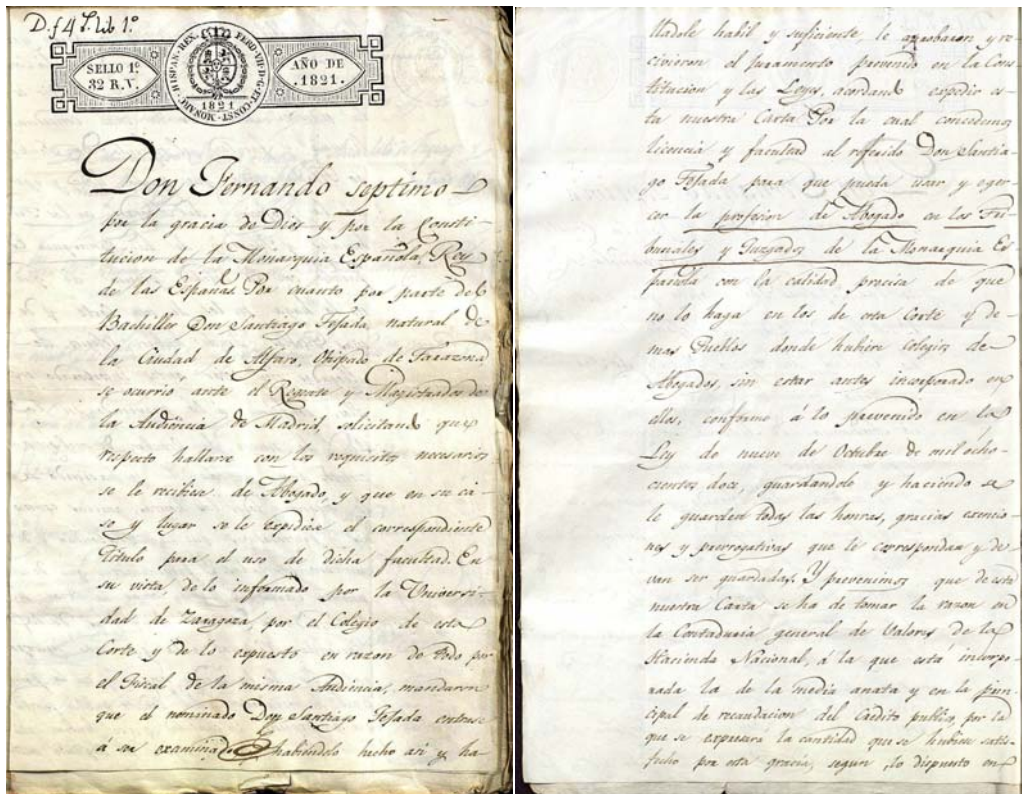 D. f 4 S. lib 1º
SELLO 1º
32 R.V.
HISPAN. REX. FERD. VII. D. G. ET CONST. MONARC.
1821
AÑO DE
.1821.
Don Fernando septimo
por la gracia de Dios y por la Consti-
tucion de la Monarquia Española, Rey
de las Españas. Por cuanto por parte del
Bachiller Don Santiago Tejada, natural de
la Ciudad de Alfaro, Obispado de Tarazona
se ocurrio ante el Regente y Magistrados de
la Audiencia de Madrid, solicitando que
respecto hallarse con los requisitos necesarios
se le recibiese de Abogado, y que en su ca-
so y lugar se le expidiese el correspondiente
titulo para el uso de dicha facultad. En
su vista, de lo informado por la Universi-
dad de Zaragoza, por el Colegio de esta
Corte y de lo expuesto en razon de todo por
el Fiscal de la misma Audiencia, mandaron
que el nominado Don Santiago Tejada entrase
á ser examinado habiendolo hecho asi y ha
lladole habil y suficiente, le aprobaron y re-
civieron el juramento prevenido en la Cons-
titucion y las Leyes, acordando expedir es-
ta nuestra Carta Por la cual concedemos
licencia y facultad al referido Don Santia-
go Tejada para que pueda usar y eger-
cer la profesion de Abogado en los Tri-
bunales y Juzgados de la Monarquia Es
pañola con la calidad precisa de que
no lo haga en los de esta Corte y de-
mas Pueblos donde hubiere colegios de
Abogados, sin estar antes incorporado en
ellos, conforme á lo prevenido en la
Ley de nueve de Octubre de mil ocho-
cientos doce, guardandole y haciendo se
le guarden todas las honras, gracias exencio-
nes y prerrogativas que le correspondan y de-
van ser guardadas. Y prevenimos que de esta
nuestra Carta se ha de tomar la razon en
la Contaduria general de Valores de la
Hacienda Nacional, á la que está incorpo-
rada la de la media anata y en la prin-
cipal de recaudacion del Credito publico, por la
que se expresará la cantidad que se hubiere satis-
fecho por esta gracia, segun lo dispuesto en